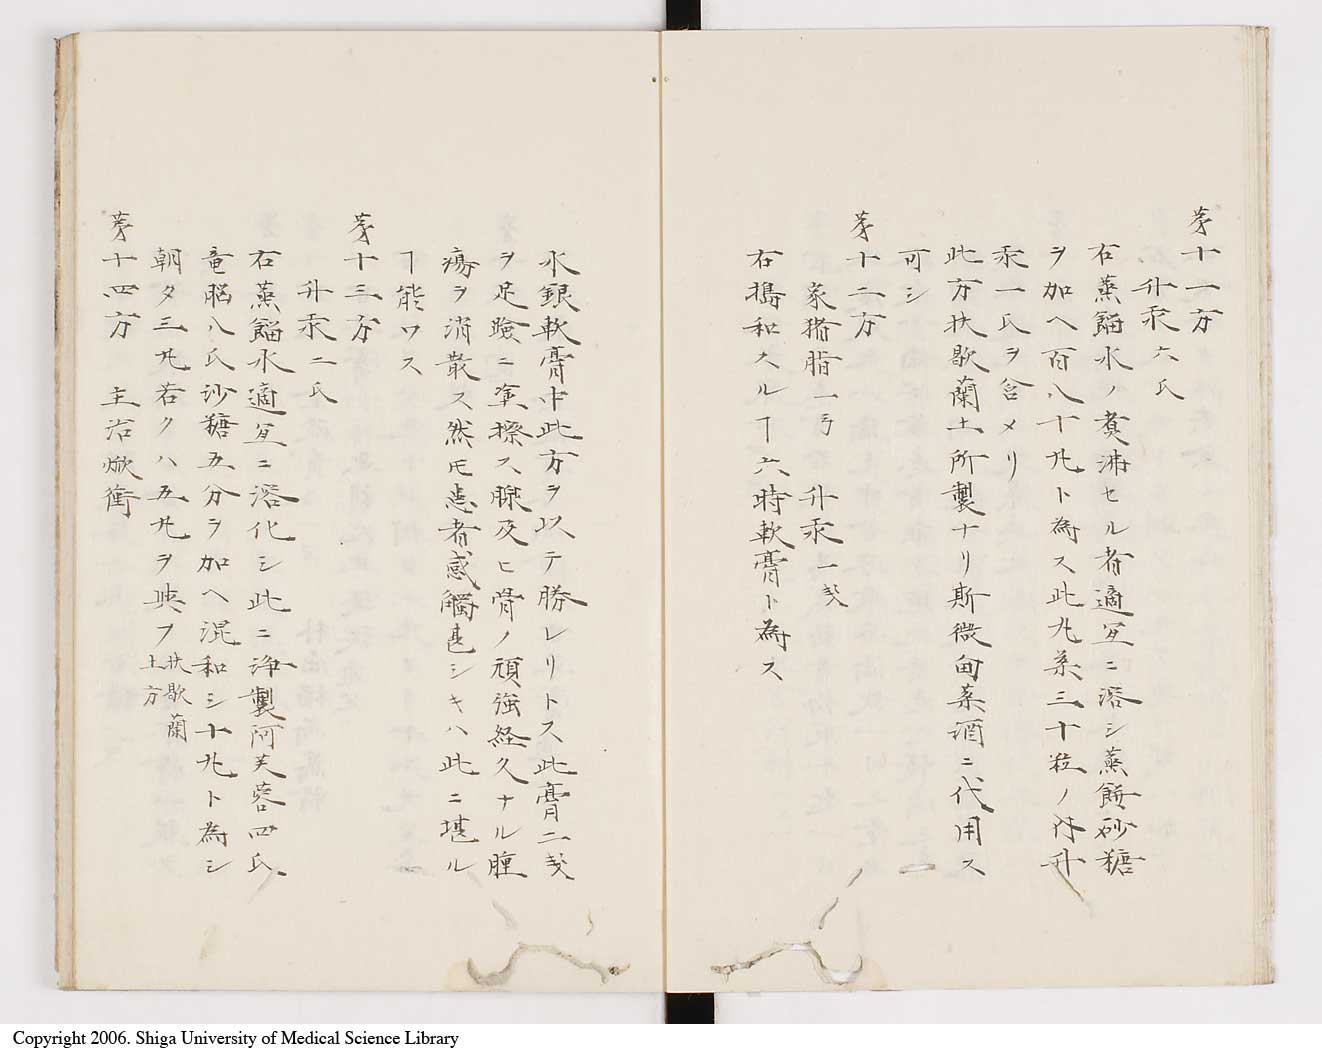 第十一方
升汞六氏
右蒸餾水ノ煑沸セル者適宜ニ溶シ蒸餅砂糖
ヲ加ヘ百八十丸ト為ス此丸薬三十粒ノ内升
汞一氏ヲ含メリ
此方扶歇蘭土所製ナリ斯微甸薬酒ニ代用ス
可シ
第十二方
家猪脂一弓 升汞一戔
右搗和スルヿ六時軟膏ト為ス
水銀軟膏中此方ヲ以テ勝レリトス此膏二戔
ヲ足蹠ニ塗擦ス腺及ヒ骨ノ頑強経久ナル腫
瘍ヲ消散ス然モ患者感觸甚シキハ此ニ堪ル
ヿ能ワス
第十三方
升汞二氏
右蒸餾水適宜ニ溶化シ此ニ浄製阿芙蓉四氏
竜脳八氏沙糖五分ヲ加ヘ混和シ十丸ト為シ
朝夕三丸若クハ五丸ヲ與フ 扶歇蘭
土方
第十四方 主治焮衝
Copyright 2006. Shiga University of Medical Science Library